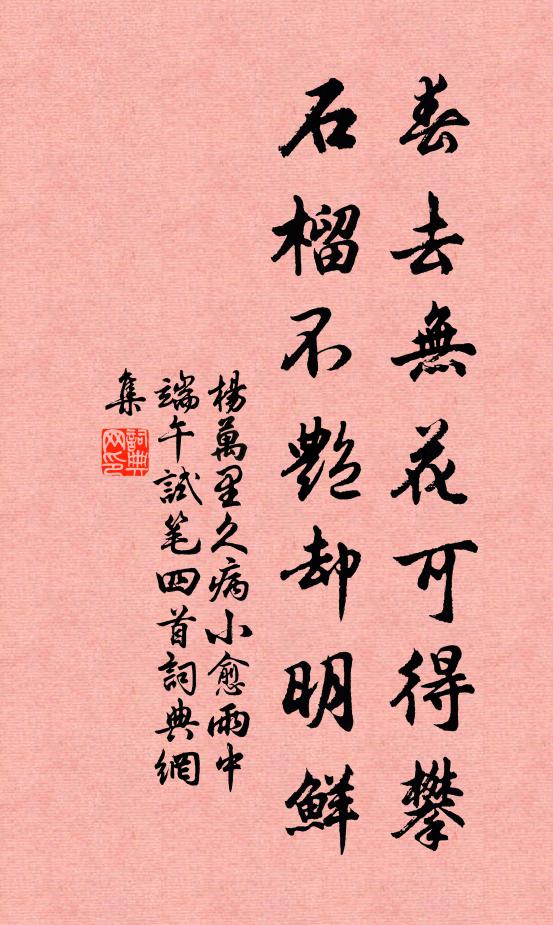 春去無花可得攀
石榴不艷却明鮮
楊萬里久病小愈雨中
端午試筆四首詞典網
集
詞典
网印